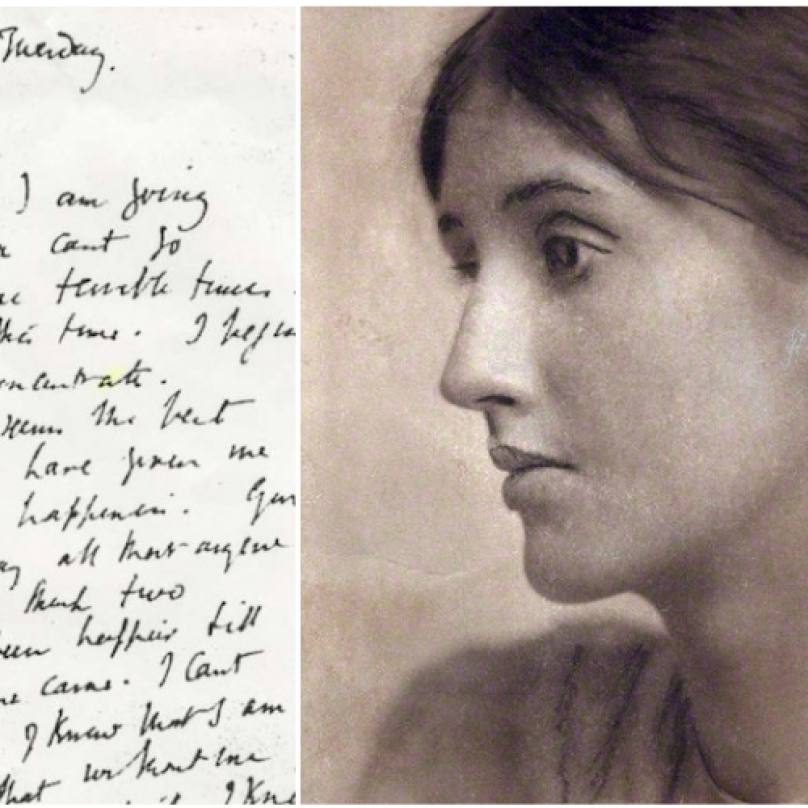 Tuesday.
I am going
cant go
terrible times.
this time. I
seems the best
have given me
happiness. You
all that anyone
think two
happier till
came. I cant
I know that I am
that without me
I